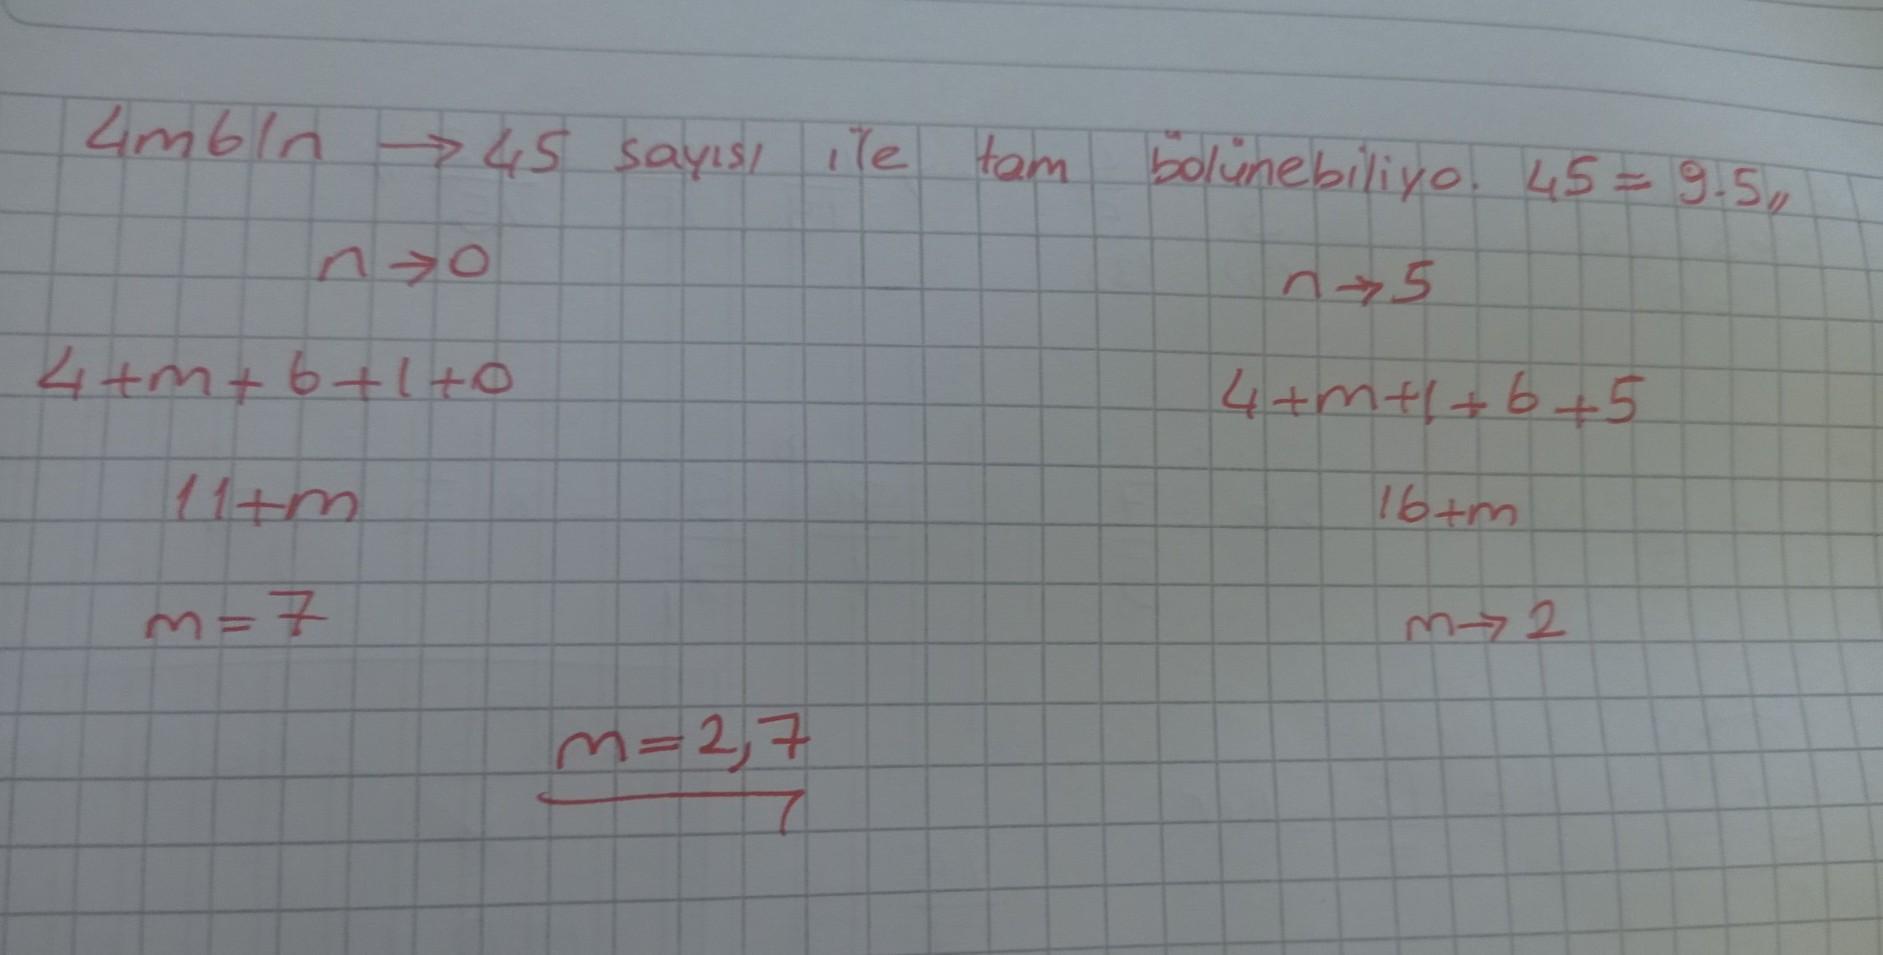 4m61n → 45 sayısı ile tam bölünebiliyo. 45 = 9.5,,
n → 0
n → 5
4+m+6+1+0
4+m+1+6+5
11+m
16+m
m = 7
m → 2
m = 2,7